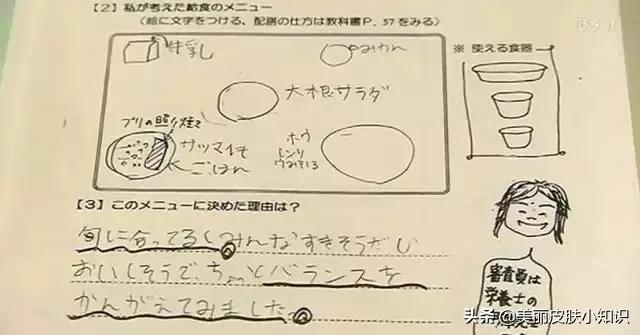 【2】私が考えた給食のメニュー
(絵に文字をつける、配膳の仕方は教科書P.57をみる)
牛乳
みかん
※ 使える食器
大根サラダ
ブリの照り焼き
サツマイモ
ごはん
ホウ
レンソ
ウみそしる
【3】このメニューに決めた理由は?
旬に合ってるしみんなすきそうだし
おいしそうで、ちゃんとバランスを
かんがえてみました。
審査員は
栄養士の
头条 @美丽皮肤小知识